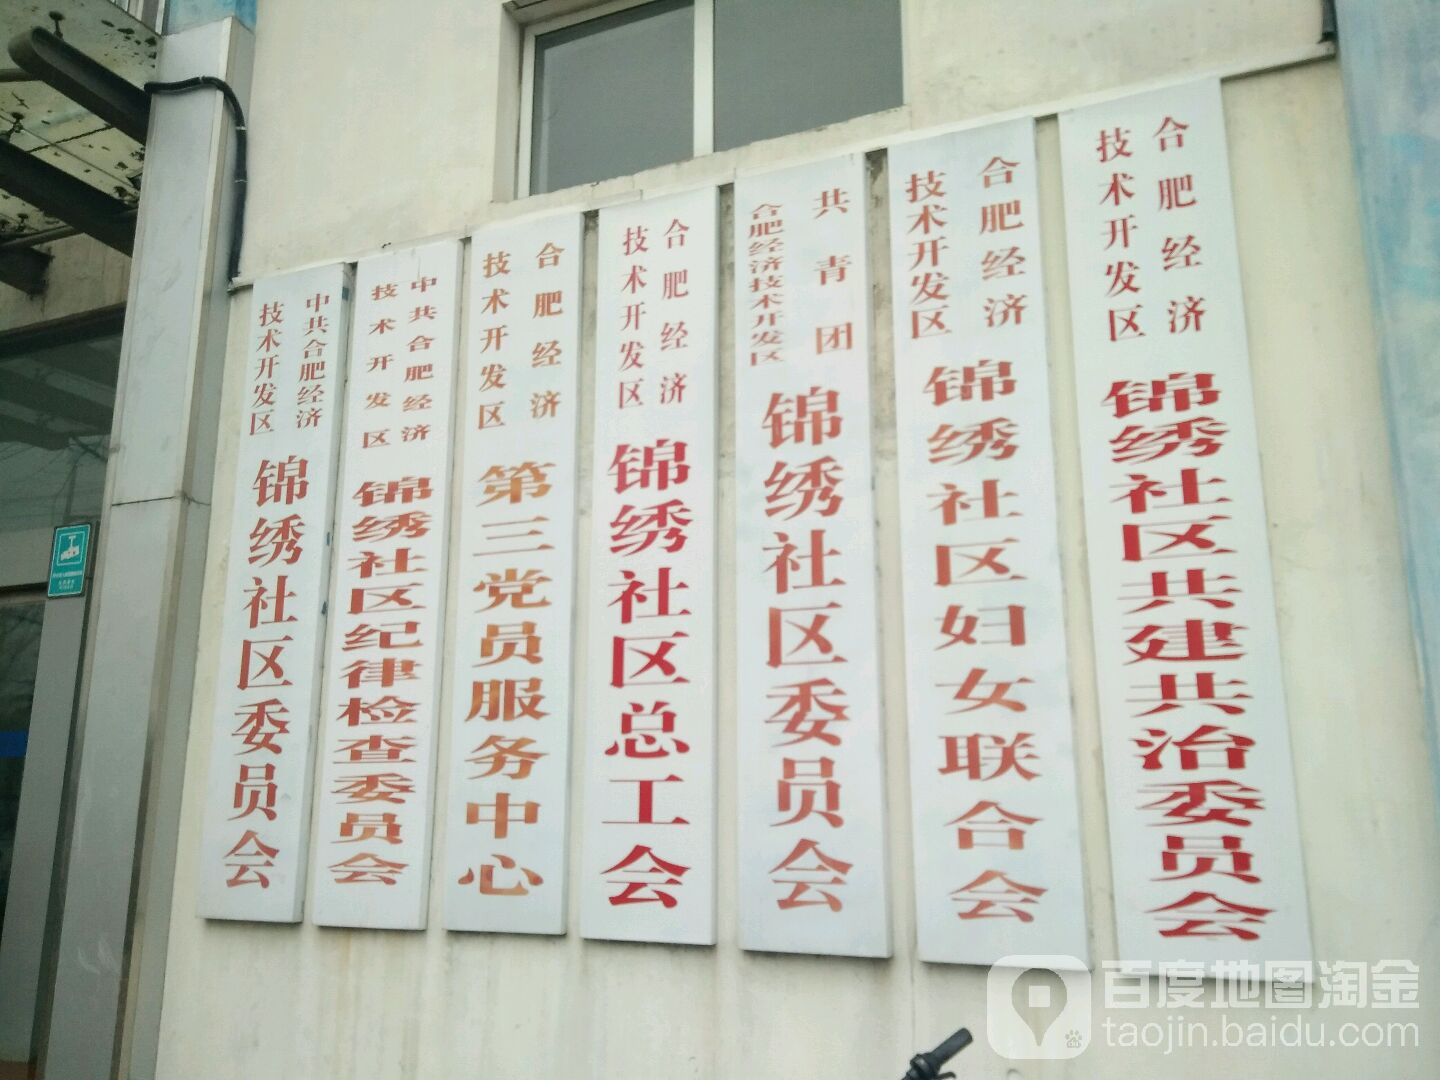 中共合肥经济
技术开发区
锦绣社区委员会
中共合肥经济
技术开发区
锦绣社区纪律检查委员会
合肥经济
技术开发区
第三党员服务中心
合肥经济
技术开发区
锦绣社区总工会
共青团
合肥经济技术开发区
锦绣社区委员会
合肥经济
技术开发区
锦绣社区妇女联合会
合肥经济
技术开发区
锦绣社区共建共治委员会
百度地图淘金
taojin.baidu.com